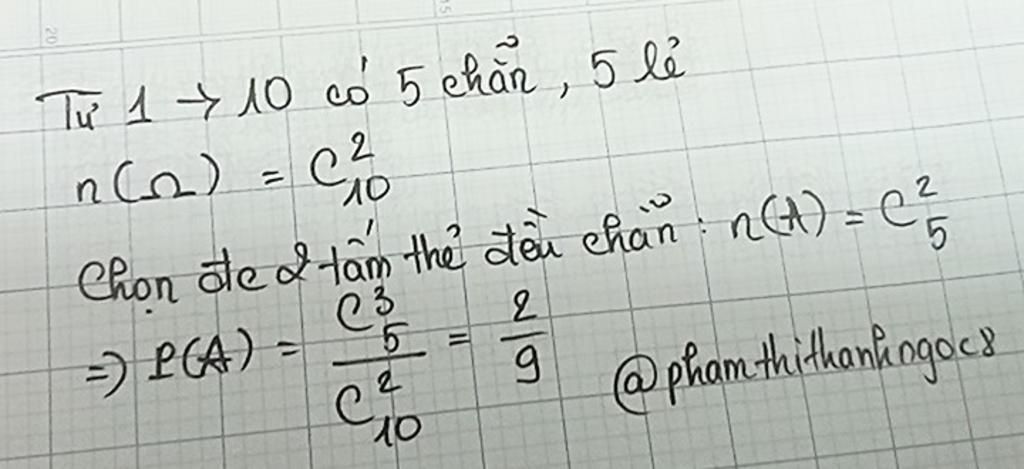 Từ 1 → 10 có 5 chẵn, 5 lẻ
n(Ω) = C²₁₀
Chọn đc 2 tấm thẻ đều chẵn : n(A) = C²₅
=> P(A) = C³₅ / C²₁₀ = 2/9
@phamthithanhngoc8